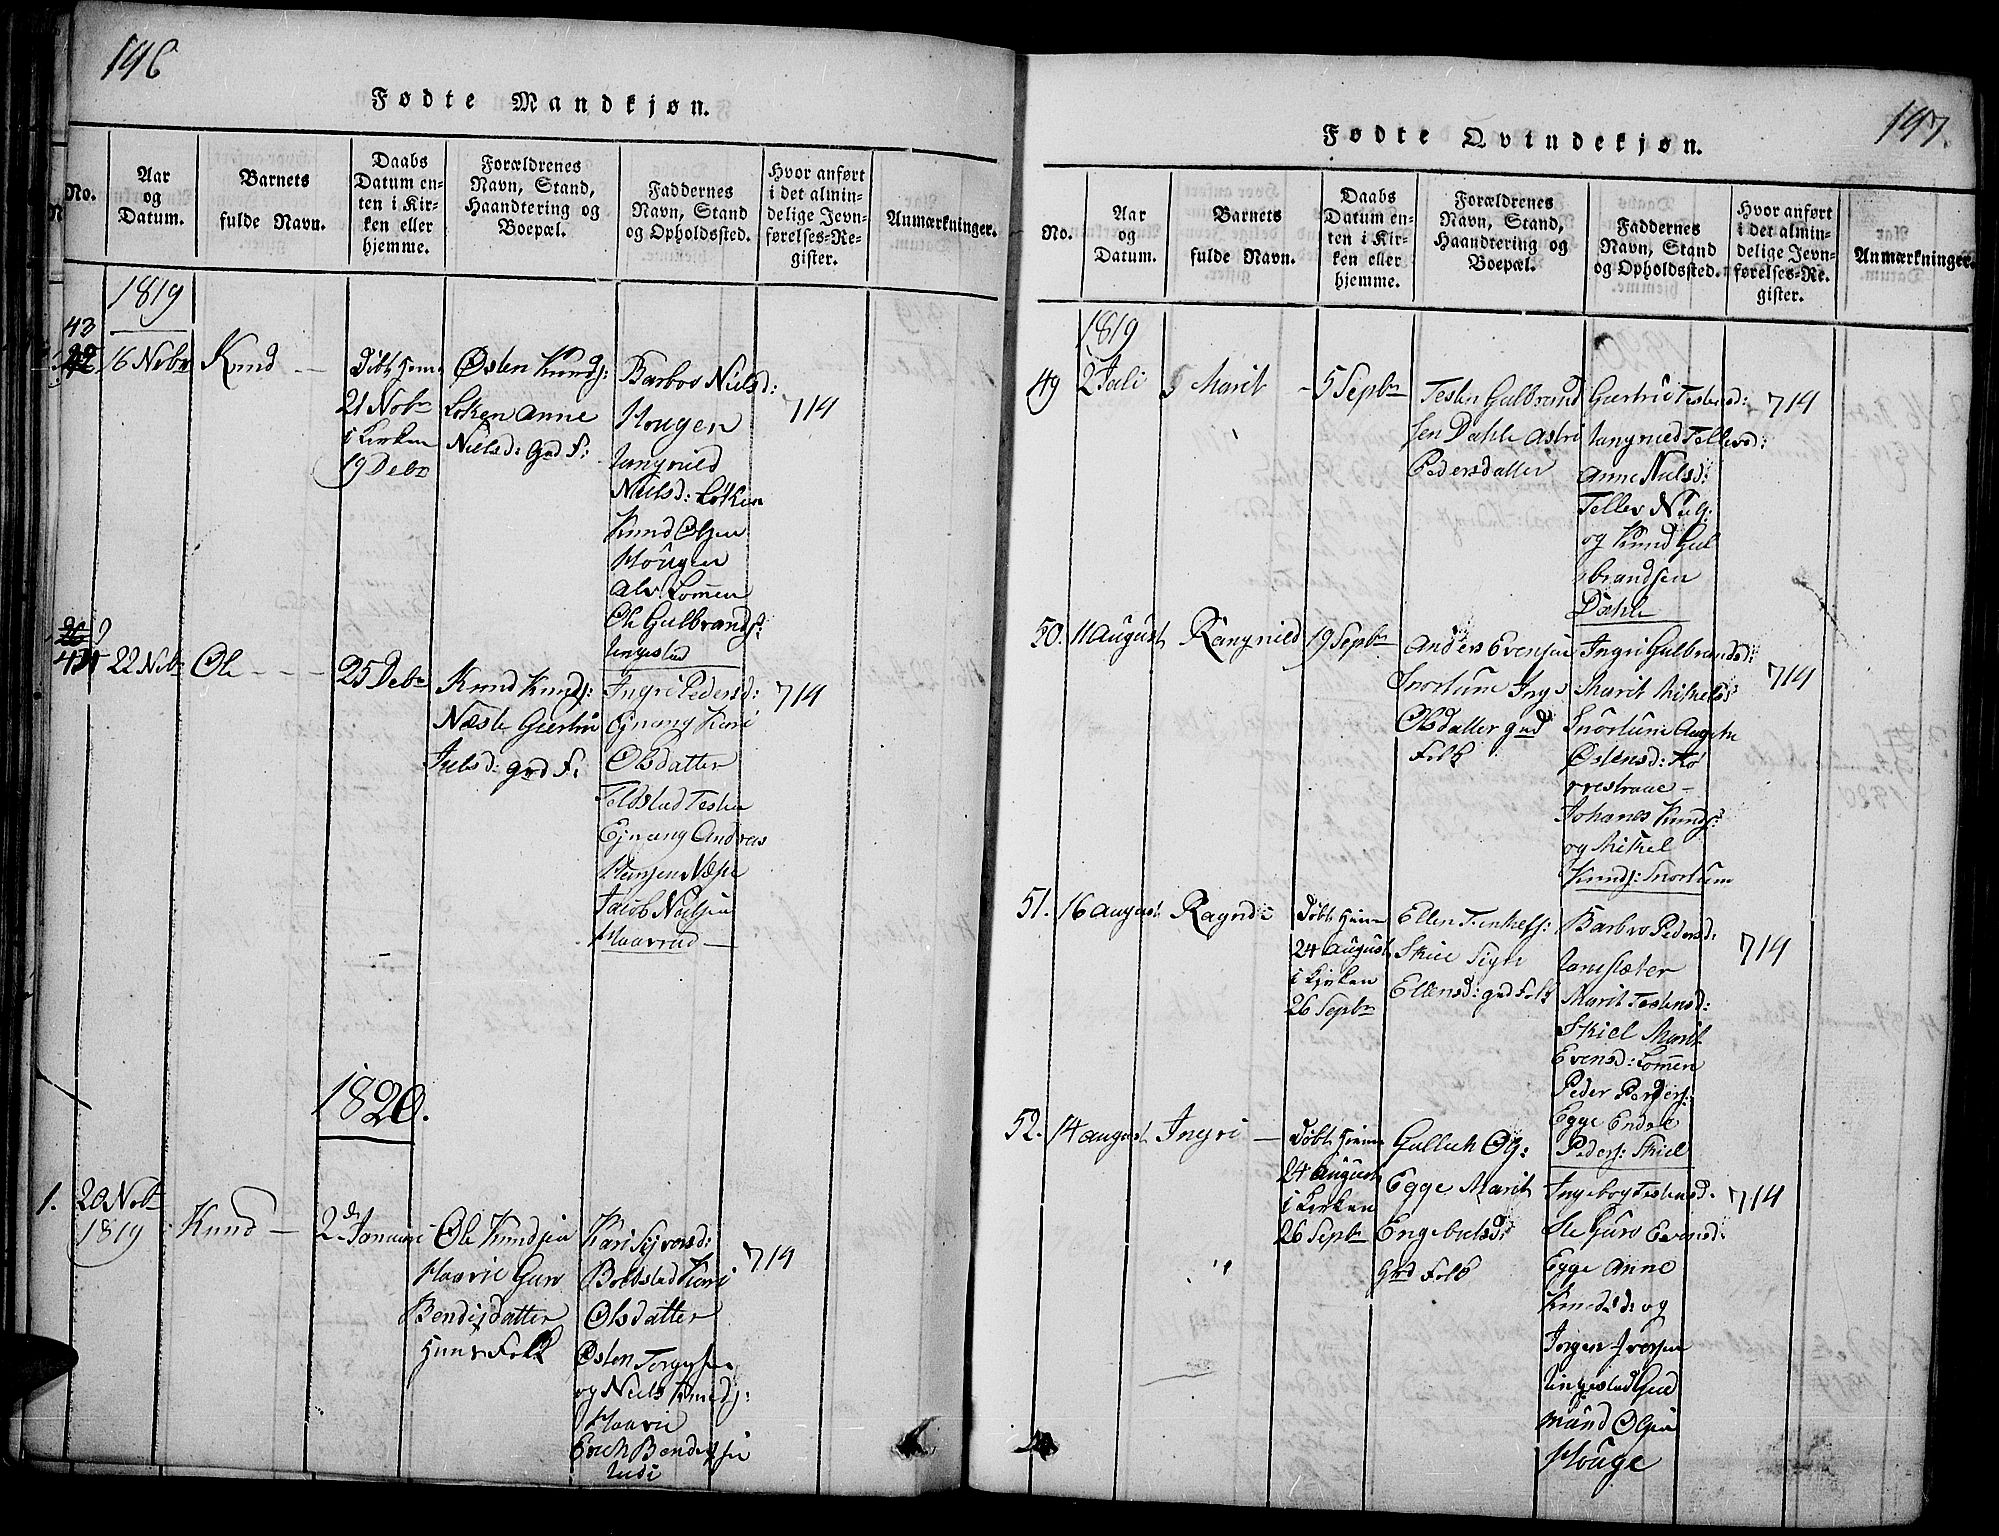 196
Fødte Mandkjøn.
No.
Aar
og
Datum.
Barnets
fulde Navn.
Daabs
Datum en-
ten i Kir-
ken eller
hjemme.
Forældrenes
Navn, Stand,
Haandtering og
Boepæl.
Faddernes
Navn, Stand
og Opholdssted.
Hvor anført
i det almin-
delige Jevn-
førelses-Re-
gister.
Anmærkninger.
1819
43
16 Nobr
Knud
Døbt Hjem
21 Nobr
i Kirken
19 Debr
Østen Knuds:
Løken Anne
Nielsd: Grd F:
Barbro Nielsd:
Hougen
Nielsd: Løken
Knud Olsen
Hougen
Lomen
Ole Gulbrands:
714
22 Nobr
Ole
25 Debr
Knud Knuds:
Næste Giertru
grd F:
Ingri Pedersd:
Ejnang Kari
Olsdatter
Feldstad Testen
Ejnang Andreas
Jacob Nielsen
Haavrud
714
1820.
1.
20 Nobr
1819
Knud
2d Januari
Ole Knudsen
Haavie Guro
Bendixdatter
Huus Folk
Kari Syversd:
Kari
Olsdatter
Østen
og Niels
Haavie
Erich
714
197.
Fødte Qvindekjøn.
No.
Aar
og
Datum.
Barnets
fulde Navn.
Daabs
Datum en-
ten i Kir-
ken eller
hjemme.
Forældrenes
Navn, Stand,
Haandtering og
Boepæl.
Faddernes
Navn, Stand
og Opholdssted.
Hvor anført
i det almin-
delige Jevn-
førelses-Re-
gister.
Anmærkninger.
1819
49
2 Juli
Marit
5 Sepbr
Testen Gulbrand
sen Dahle Astri
Pedersdatter
Giertrie Testensd:
Rangnied Tellevsd:
Anne Nielsd:
Tellev Niels:
og Knud Gul
brandsen
Dahle
714
50.
11 August
Rangnied
19 Sepbr
Anders Evensen
Snortum Inge
Olsdatter grd
Folk
Ingri Gulbrandsd:
Marit Mikelsd
Snortum
Østensd:
Johanes Knuds:
og Mikel
Knuds: Snortum
714
51.
16 August
Ragnde
Døbt Hiem
24 August
i Kirken
26 Sepbr
Ellen
Skiel Sigri
Ellensd: grd Folk
Barbro Pedersd:
Marit Testensd:
Skiel Marit
Evensd: Lomen
Peder Peders:
Egge Endre
Peders: Skiel
714
52.
14 August
Ingri
Døbt Hiem
24 August
i Kirken
26 Sepbr
Gullich Ols:
Egge Marit
Engebretsd:
Grd Folk
Ingeborg Testensd.
Guro Evensd:
Egge Anne
Knudsd: og
Jørgen Iversen
Ringestad Gud
mund Olsen
Houge
714